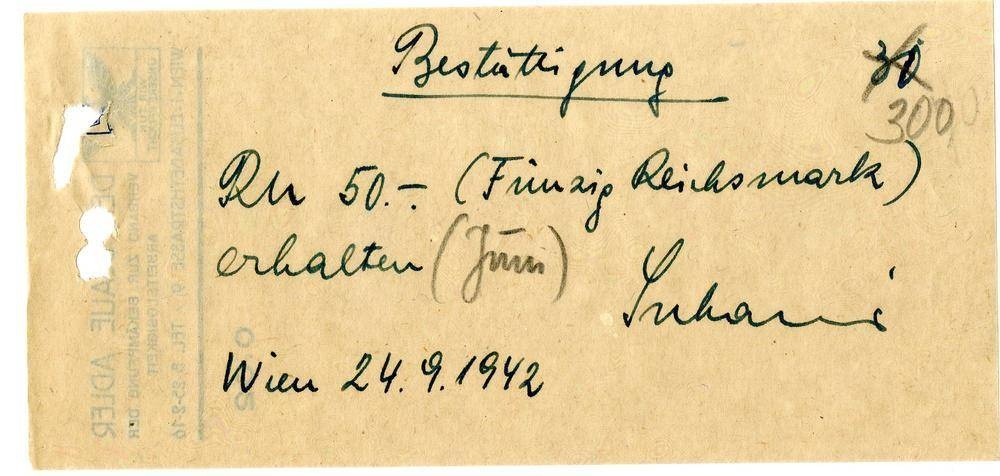 Bestätigung
30
300
RM 50.- (Fünzig Reichsmark)
erhalten (Juni)
Wien 24.9.1942
DER BLAUE ADLER
VERBAND ZUR BEKÄMPFUNG DER
ARBEITSLOSIGKEIT
WIEN, I. ELISABETHSTRASSE 9. TEL. B 25-2-16